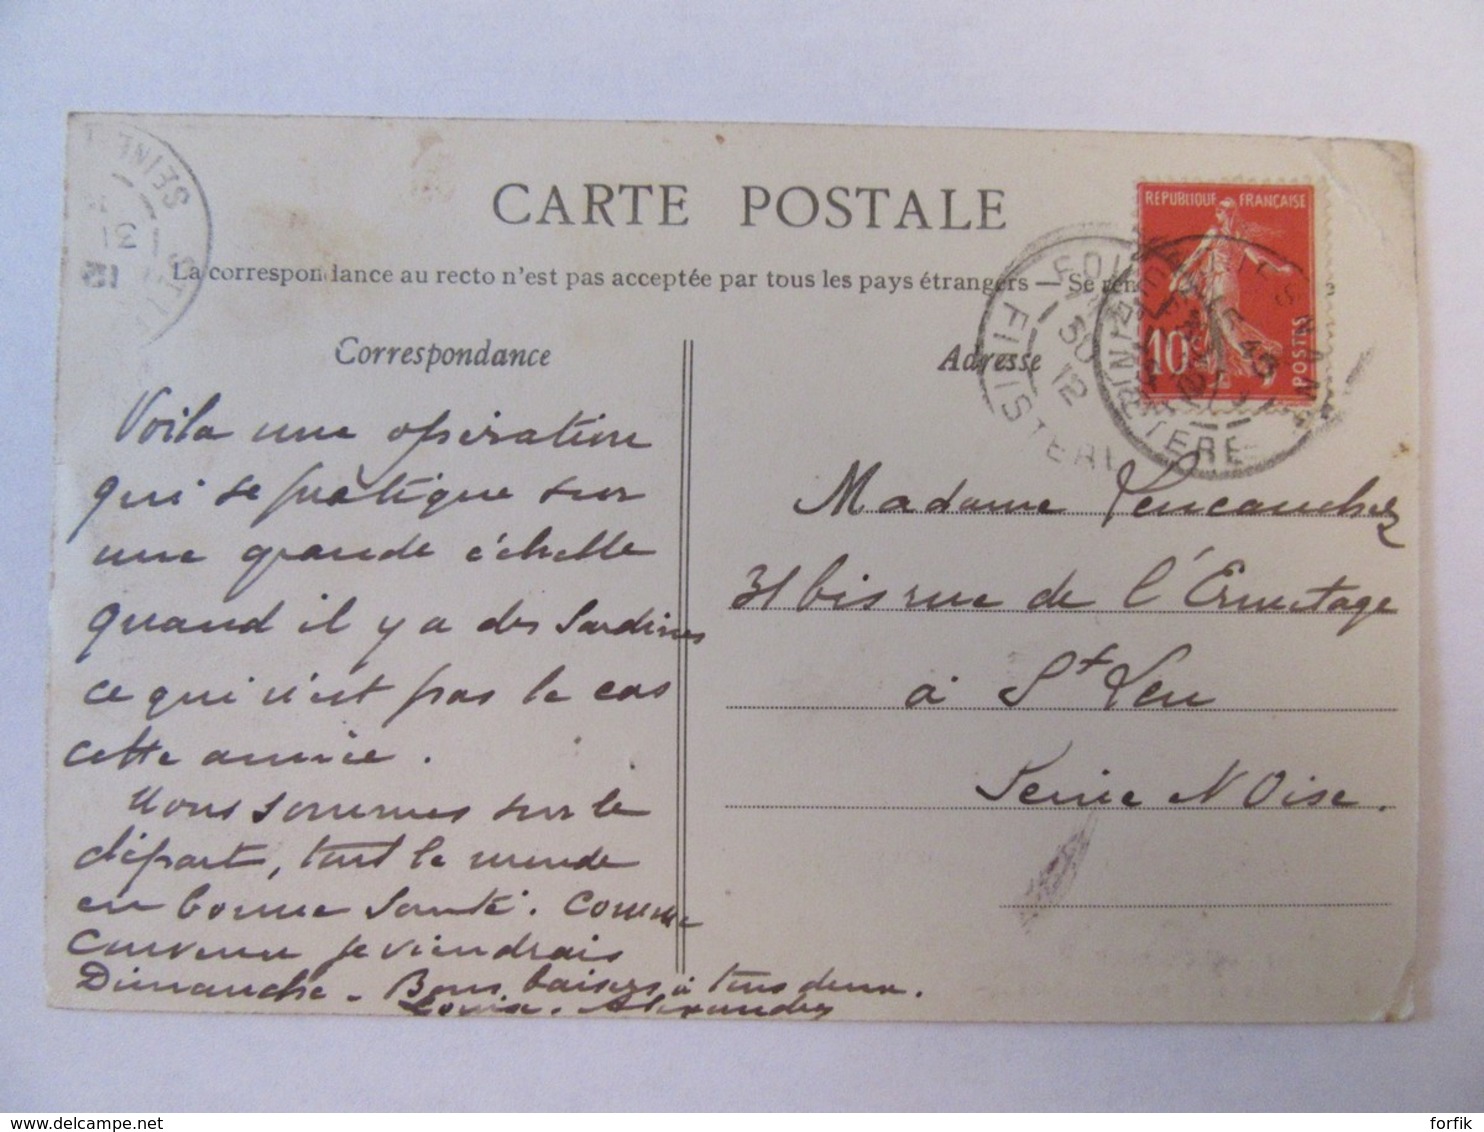 CARTE POSTALE
La correspondance au recto n'est pas acceptée par tous les pays étrangers — Se ren
REPUBLIQUE FRANÇAISE
10
POSTES
SEINE
31
12
30
12
FINISTERE
FINISTERE
Correspondance
Adresse
Voila une opération
qui se pratique sur
une grande échelle
quand il y a des Sardines
ce qui n'est pas le cas
cette année.
Nous sommes sur le
départ, tout le monde
en bonne Santé. Comme
Convenu je viendrais
Dimanche - Bons baisers à tous deux.
Louise. Alexandre
Madame
31 bis rue de l'Ermitage
à St Leu
Seine N Oise.
delcampe.net
forfik